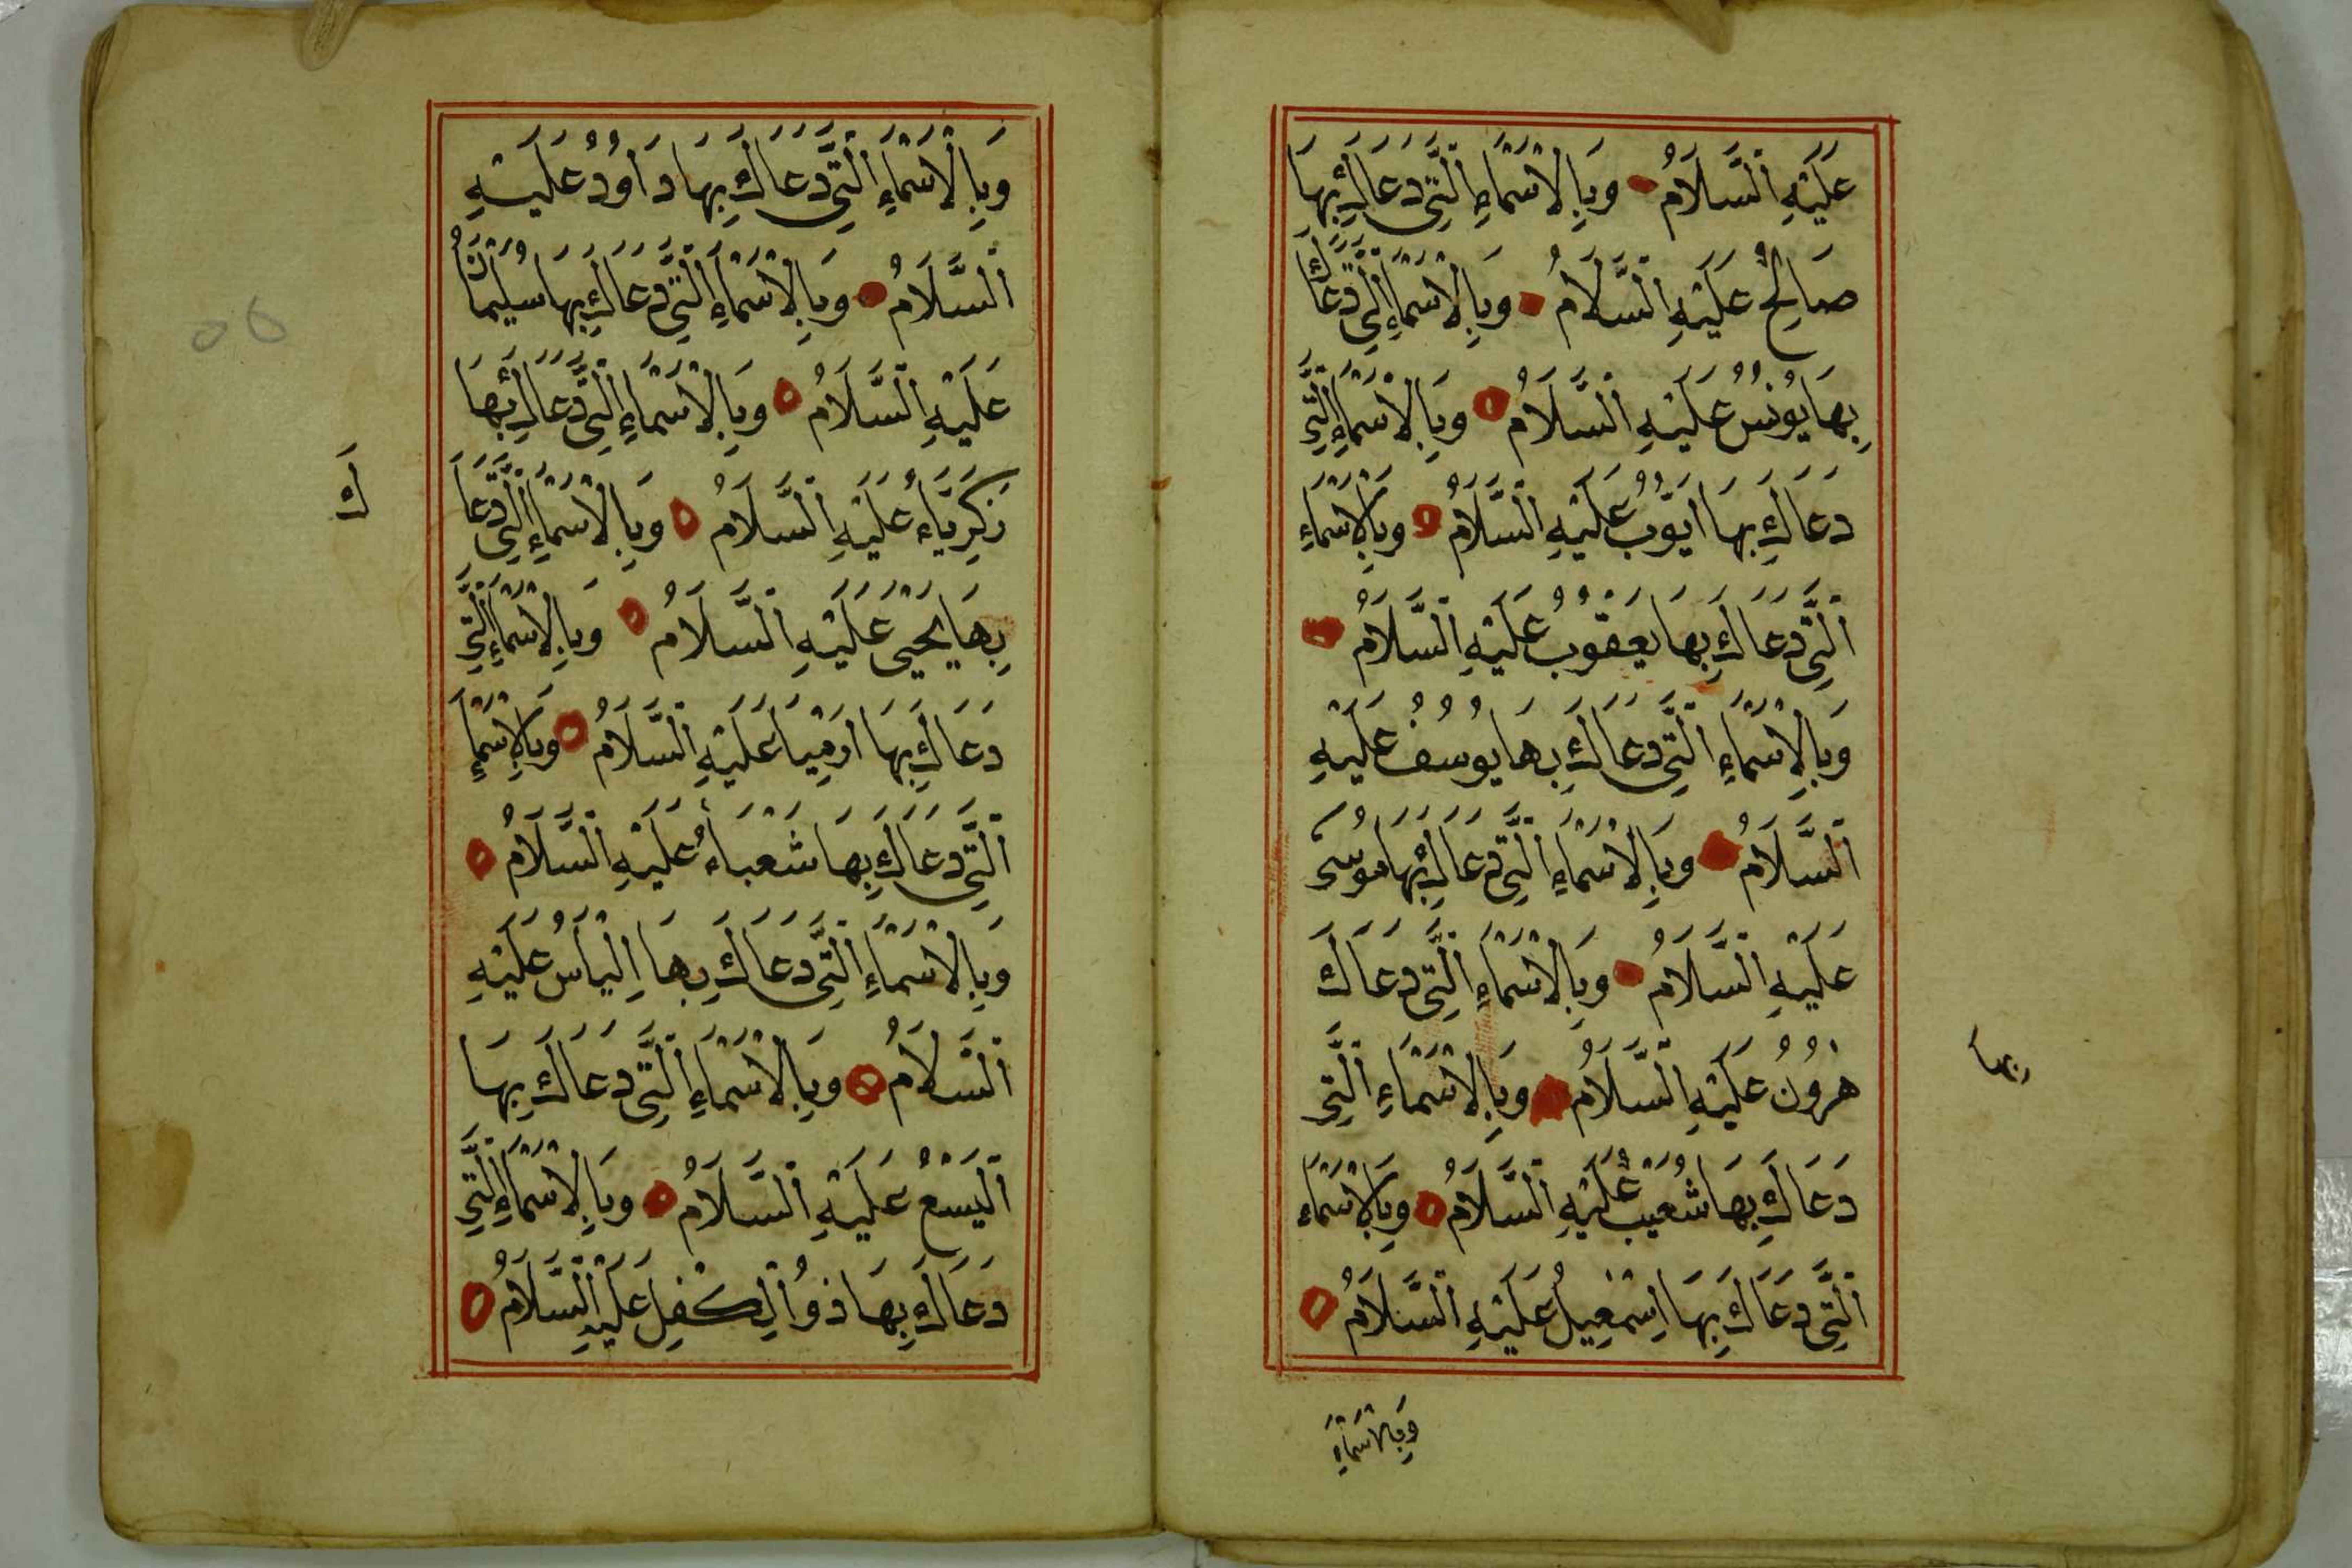 عَلَيْهِ اَلسَّلَامُ وَبِالْاَسْمَاءِ الَّتِى دَعَاكَ بِهَا
صَالِحٌ عَلَيْهِ السَّلَامُ وَبِالْاَسْمَاءِ الَّتِى دَعَاكَ
بِهَا يُونُسُ عَلَيْهِ السَّلَامُ وَبِالْاَسْمَاءِ الَّتِى
دَعَاكَ بِهَا اَيُّوبُ عَلَيْهِ السَّلَامُ وَبِالْاَسْمَاءِ
الَّتِى دَعَاكَ بِهَا يَعْقُوبُ عَلَيْهِ السَّلَامُ
وَبِالْاَسْمَاءِ الَّتِى دَعَاكَ بِهَا يُوسُفُ عَلَيْهِ
السَّلَامُ وَبِالْاَسْمَاءِ الَّتِى دَعَاكَ بِهَا مُوسَى
عَلَيْهِ السَّلَامُ وَبِالْاَسْمَاءِ الَّتِى دَعَاكَ
هٰرُونُ عَلَيْهِ السَّلَامُ وَبِالْاَسْمَاءِ الَّتِى
دَعَاكَ بِهَا شُعَيْبُ عَلَيْهِ السَّلَامُ وَبِالْاَسْمَاءِ
الَّتِى دَعَاكَ بِهَا اِسْمٰعِيلُ عَلَيْهِ السَّلَامُ
وَبِالْاَسْمَاءِ
بها
وَبِالْاَسْمَاءِ الَّتِى دَعَاكَ بِهَا دَاوُدُ عَلَيْهِ
السَّلَامُ وَبِالْاَسْمَاءِ الَّتِى دَعَاكَ بِهَا سُلَيْمَانُ
عَلَيْهِ السَّلَامُ وَبِالْاَسْمَاءِ الَّتِى دَعَاكَ بِهَا
زَكَرِيَّاءُ عَلَيْهِ السَّلَامُ وَبِالْاَسْمَاءِ الَّتِى دَعَا
كَ
بِهَا يَحْيٰى عَلَيْهِ السَّلَامُ وَبِالْاَسْمَاءِ الَّتِى
دَعَاكَ بِهَا اَرْمِيَا عَلَيْهِ السَّلَامُ وَبِالْاَسْمَاءِ
الَّتِى دَعَاكَ بِهَا شَعْيَاءُ عَلَيْهِ السَّلَامُ
وَبِالْاَسْمَاءِ الَّتِى دَعَاكَ بِهَا اِلْيَاسُ عَلَيْهِ
السَّلَامُ وَبِالْاَسْمَاءِ الَّتِى دَعَاكَ بِهَا
الْيَسَعُ عَلَيْهِ السَّلَامُ وَبِالْاَسْمَاءِ الَّتِى
دَعَاكَ بِهَا ذُو الْكِفْلِ عَلَيْهِ السَّلَامُ